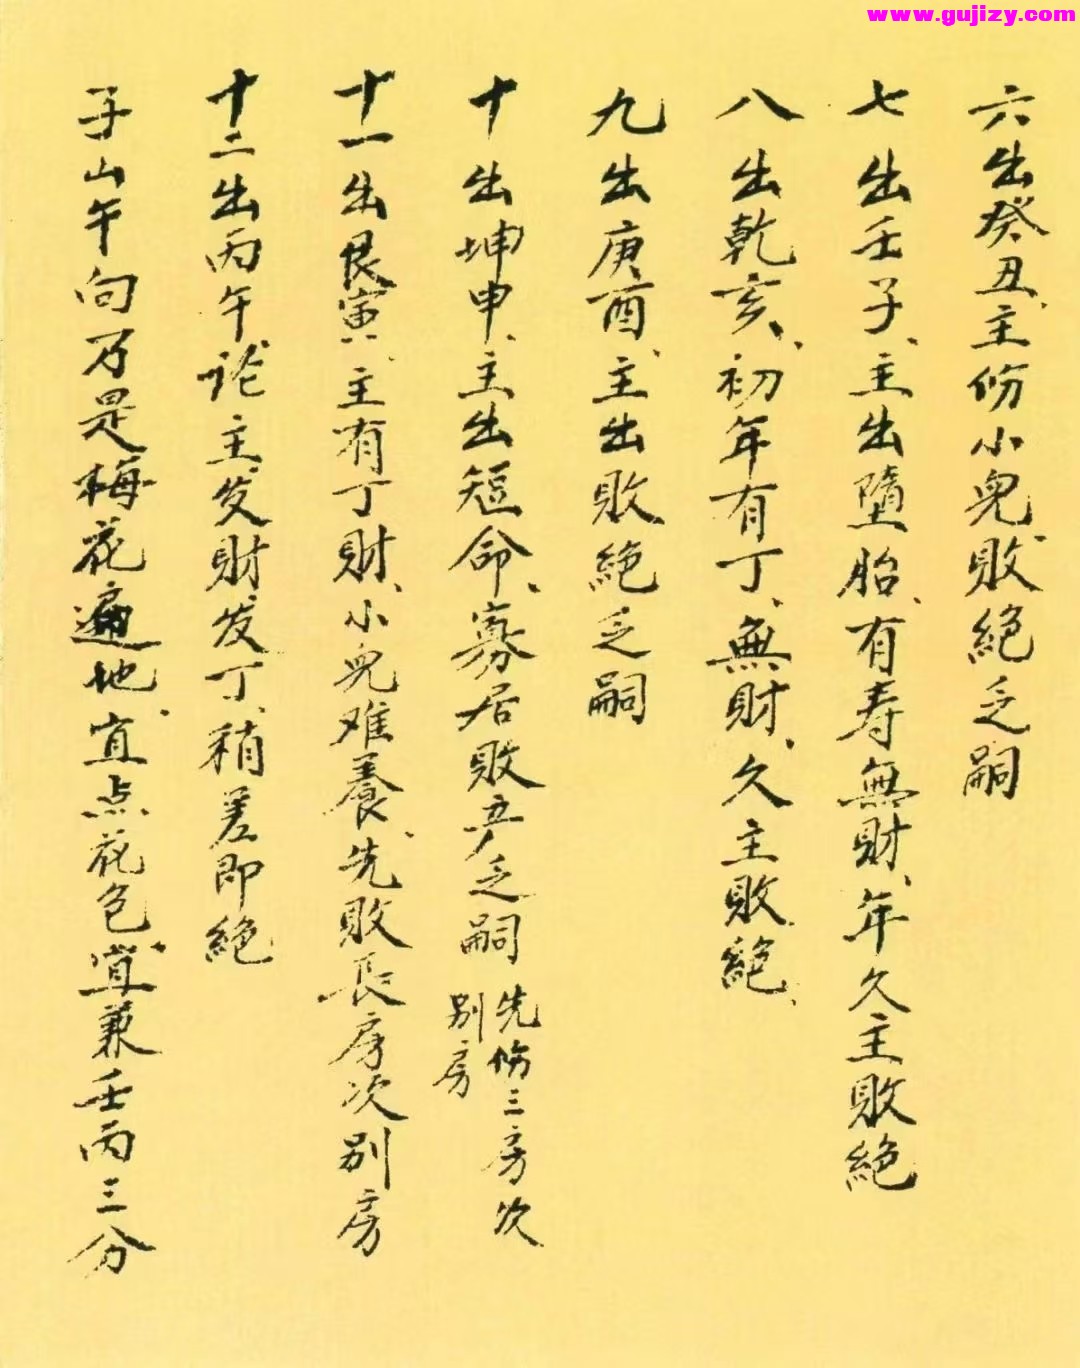 www.gujizy.com
六出癸丑、主伤小兒、敗絕乏嗣
七出壬子、主出墮胎、有寿無財、年久主敗絕
八出乾亥、初年有丁、無財、久主敗絕、
九出庚酉、主出敗絕乏嗣
十出坤申、主出短命、寡居敗产乏嗣 先伤三房次
别房
十一出艮寅、主有丁財、小兒难養、先敗長房次别房
十二出丙午、论主发財发丁、稍差即絕
子山午向乃是梅花遍地、宜点花色、宜兼壬丙三分